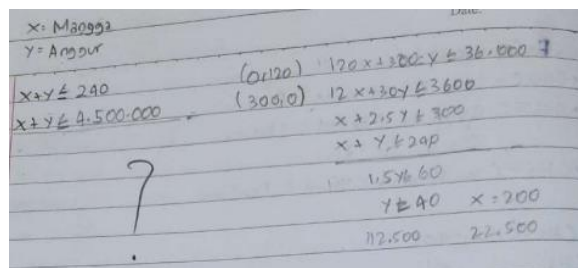 Date:
x: Mangga
y = Anggur
x+y ≤ 240
x+y ≤ 4.500.000
?
(0,120) 120x+300y ≤ 36.000
(300,0) 12x+30y ≤ 3600
x+2.5y ≤ 300
x+ y ≤ 240
1,5y ≤ 60
y ≤ 40 x = 200
112.500 22.500